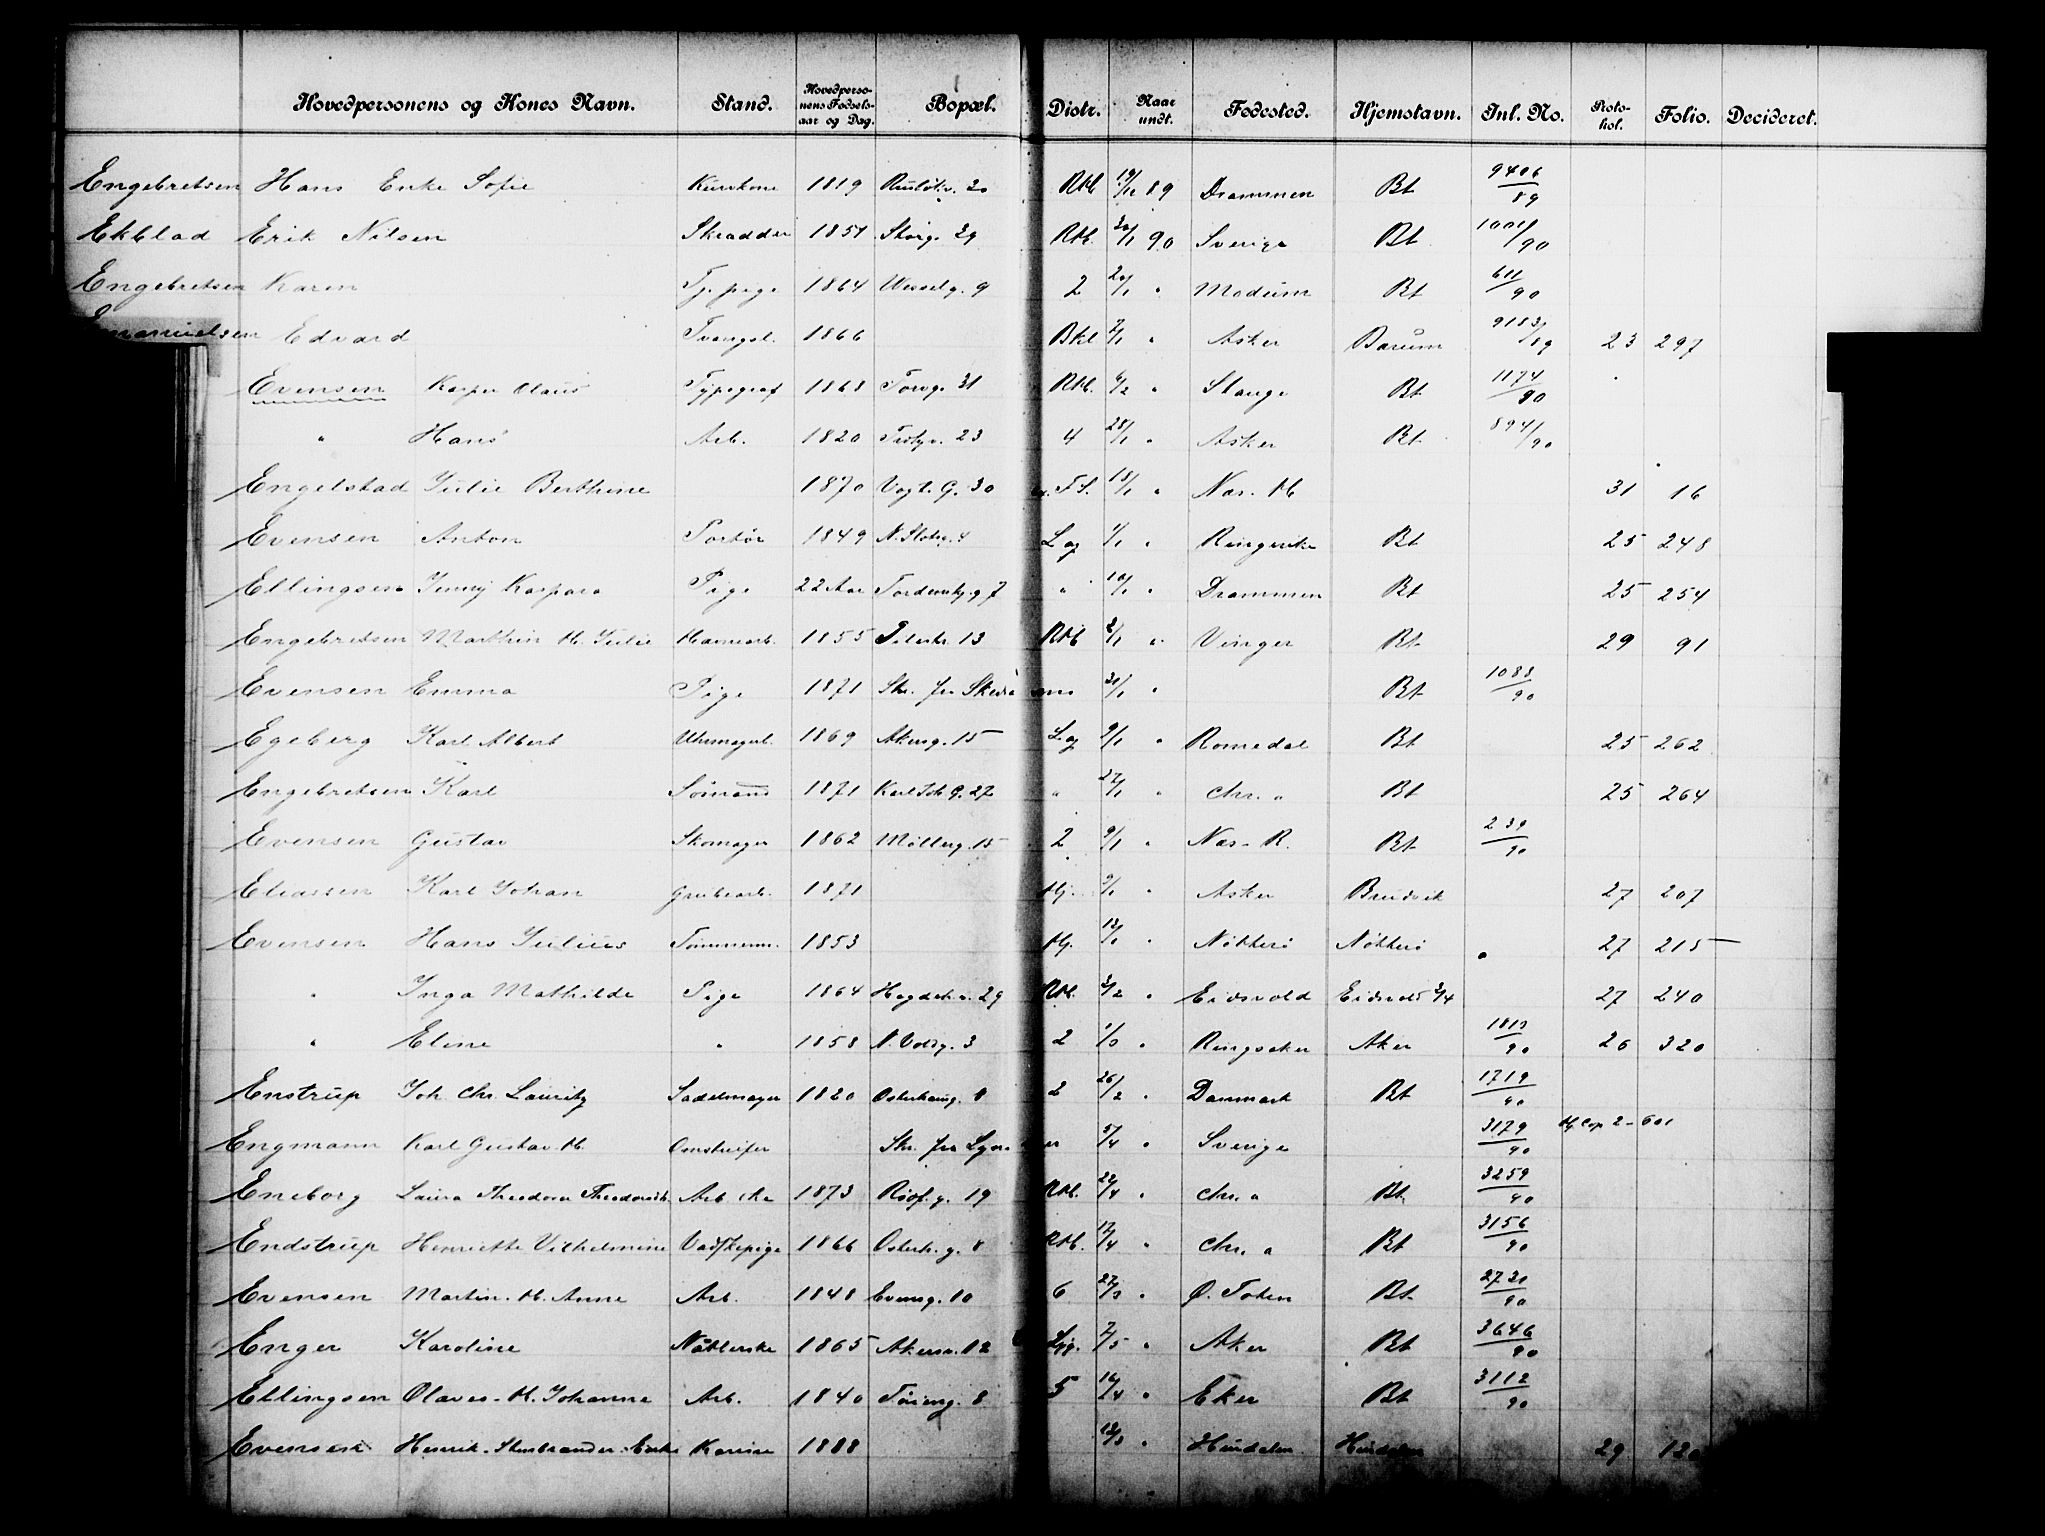 Hovedpersonens og Kones Navn. Stand. Hovedpersonens Fødselsaar og Dag. Bopæl. Distr. Naar undt. Fødested. Hjemstavn. Inl. No. Protokol. Folio. Decideret.
Engebretsen Hans Enke Sofie 1819 20 19/12 89 Drammen Bt 9406/89
Ekblad Erik Nilsen Skrædder 1851 Storg. 29 90 Sverige Bt 1001/90
Engebretsen Karen Tj. pige 1864 Wesselg. 9 2 20/1 " Modum Bt 611/90
Emanuelsen Edvard 1866 Bkl 7/1 " Asker Bærum 9183/89 23 297
Evensen Kasper Olaus Typograf 1868 Torvg. 31 6/2 " Stange Bt 1174/90
" Hans Arb. 1820 23 4 28/1 " Asker Bt 894/90
Engelstad Julie Berthine 1870 Vogt. G. 30 F.S. 18/1 " Næs. H 31 16
Evensen Anton Portør 1849 N. Slotsg. 4 Lag 1/1 " Ringerike Bt 25 248
Ellingsen Jenny Kaspara Pige 22 Aar 7 " 10/1 " Drammen Bt 25 254
Engebretsen Marthin H. Julie Havnearb. 1855 Pilestr. 13 2/1 " Vinger Bt 29 91
Evensen Emma Pige 1871 Skr. fra 1/ " Bt 1088/90
Egeberg Karl Albert Uhrmagerl. 1869 Akersg. 15 Lag 9/1 " Romedal Bt 25 262
Engebretsen Karl Sømand 1871 Karl Joh G. 27 " 27/1 " Chr. a Bt 25 264
Evensen Gustav Skomager 1862 Møllerg. 15 2 9/1 " Næs - R. Bt 239/90
Eliassen Karl Johan Grubearb. 1871 Hj. 9/1 " Asker 27 207
Evensen Hans Julius Tømmerm. 1853 Hj. /1 " Nøtterø Nøtterø 27 215
" Inga Mathilde Pige 1864 Hegdeh. v. 29 /2 " Eidsvold Eidsvold 27 240
" Eline " 1858 3 2 1/3 " Ringsaker Aker 90 26 320
Enstrup Joh. Chr. Lauritz Sadelmager 1820 Osterhausg. 8 2 26/2 " Danmark Bt 1719/90
Engmann Karl Gustav H. Omstreifer Skr. fra 5/4 " Sverige 3179/90 Hj Cop 2-601
Eneborg Laura Theodora 1873 19 /4 " Chr. a Bt 3259/90
Endstrup Henriette Vilhelmine Vadskepige 1866 Osterh. g. 8 17/4 " Chr. a Bt 3156/90
Evensen Martin. H. Anne Arb. 1848 Evensg. 10 6 27/3 " Ø. Toten Bt 90
Enger Karoline 1865 Akersv. 12 7/5 " Aker Bt 3646/90
Ellingsen Olaves - H. Johanne Arb. 1840 Tøieng. 8 5 16/4 " Eker Bt 3112/90
Evensen Henrik 1888 /3 " Hurdalen Hurdalen 29